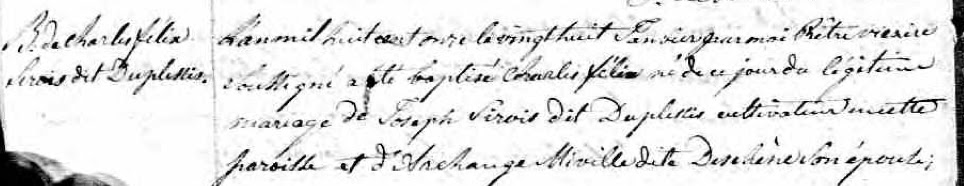 B. de Charles félix
Sirois dit Duplessis.
L'an mil huit cent onze le vingt huit Janvier par moi Prêtre vicaire
soussigné a été baptisé Charles félix né de ce jour du légitime
mariage de Joseph Sirois dit Duplessis cultivateur en cette
paroisse et d'Archange Miville dite Deschène son épouse;